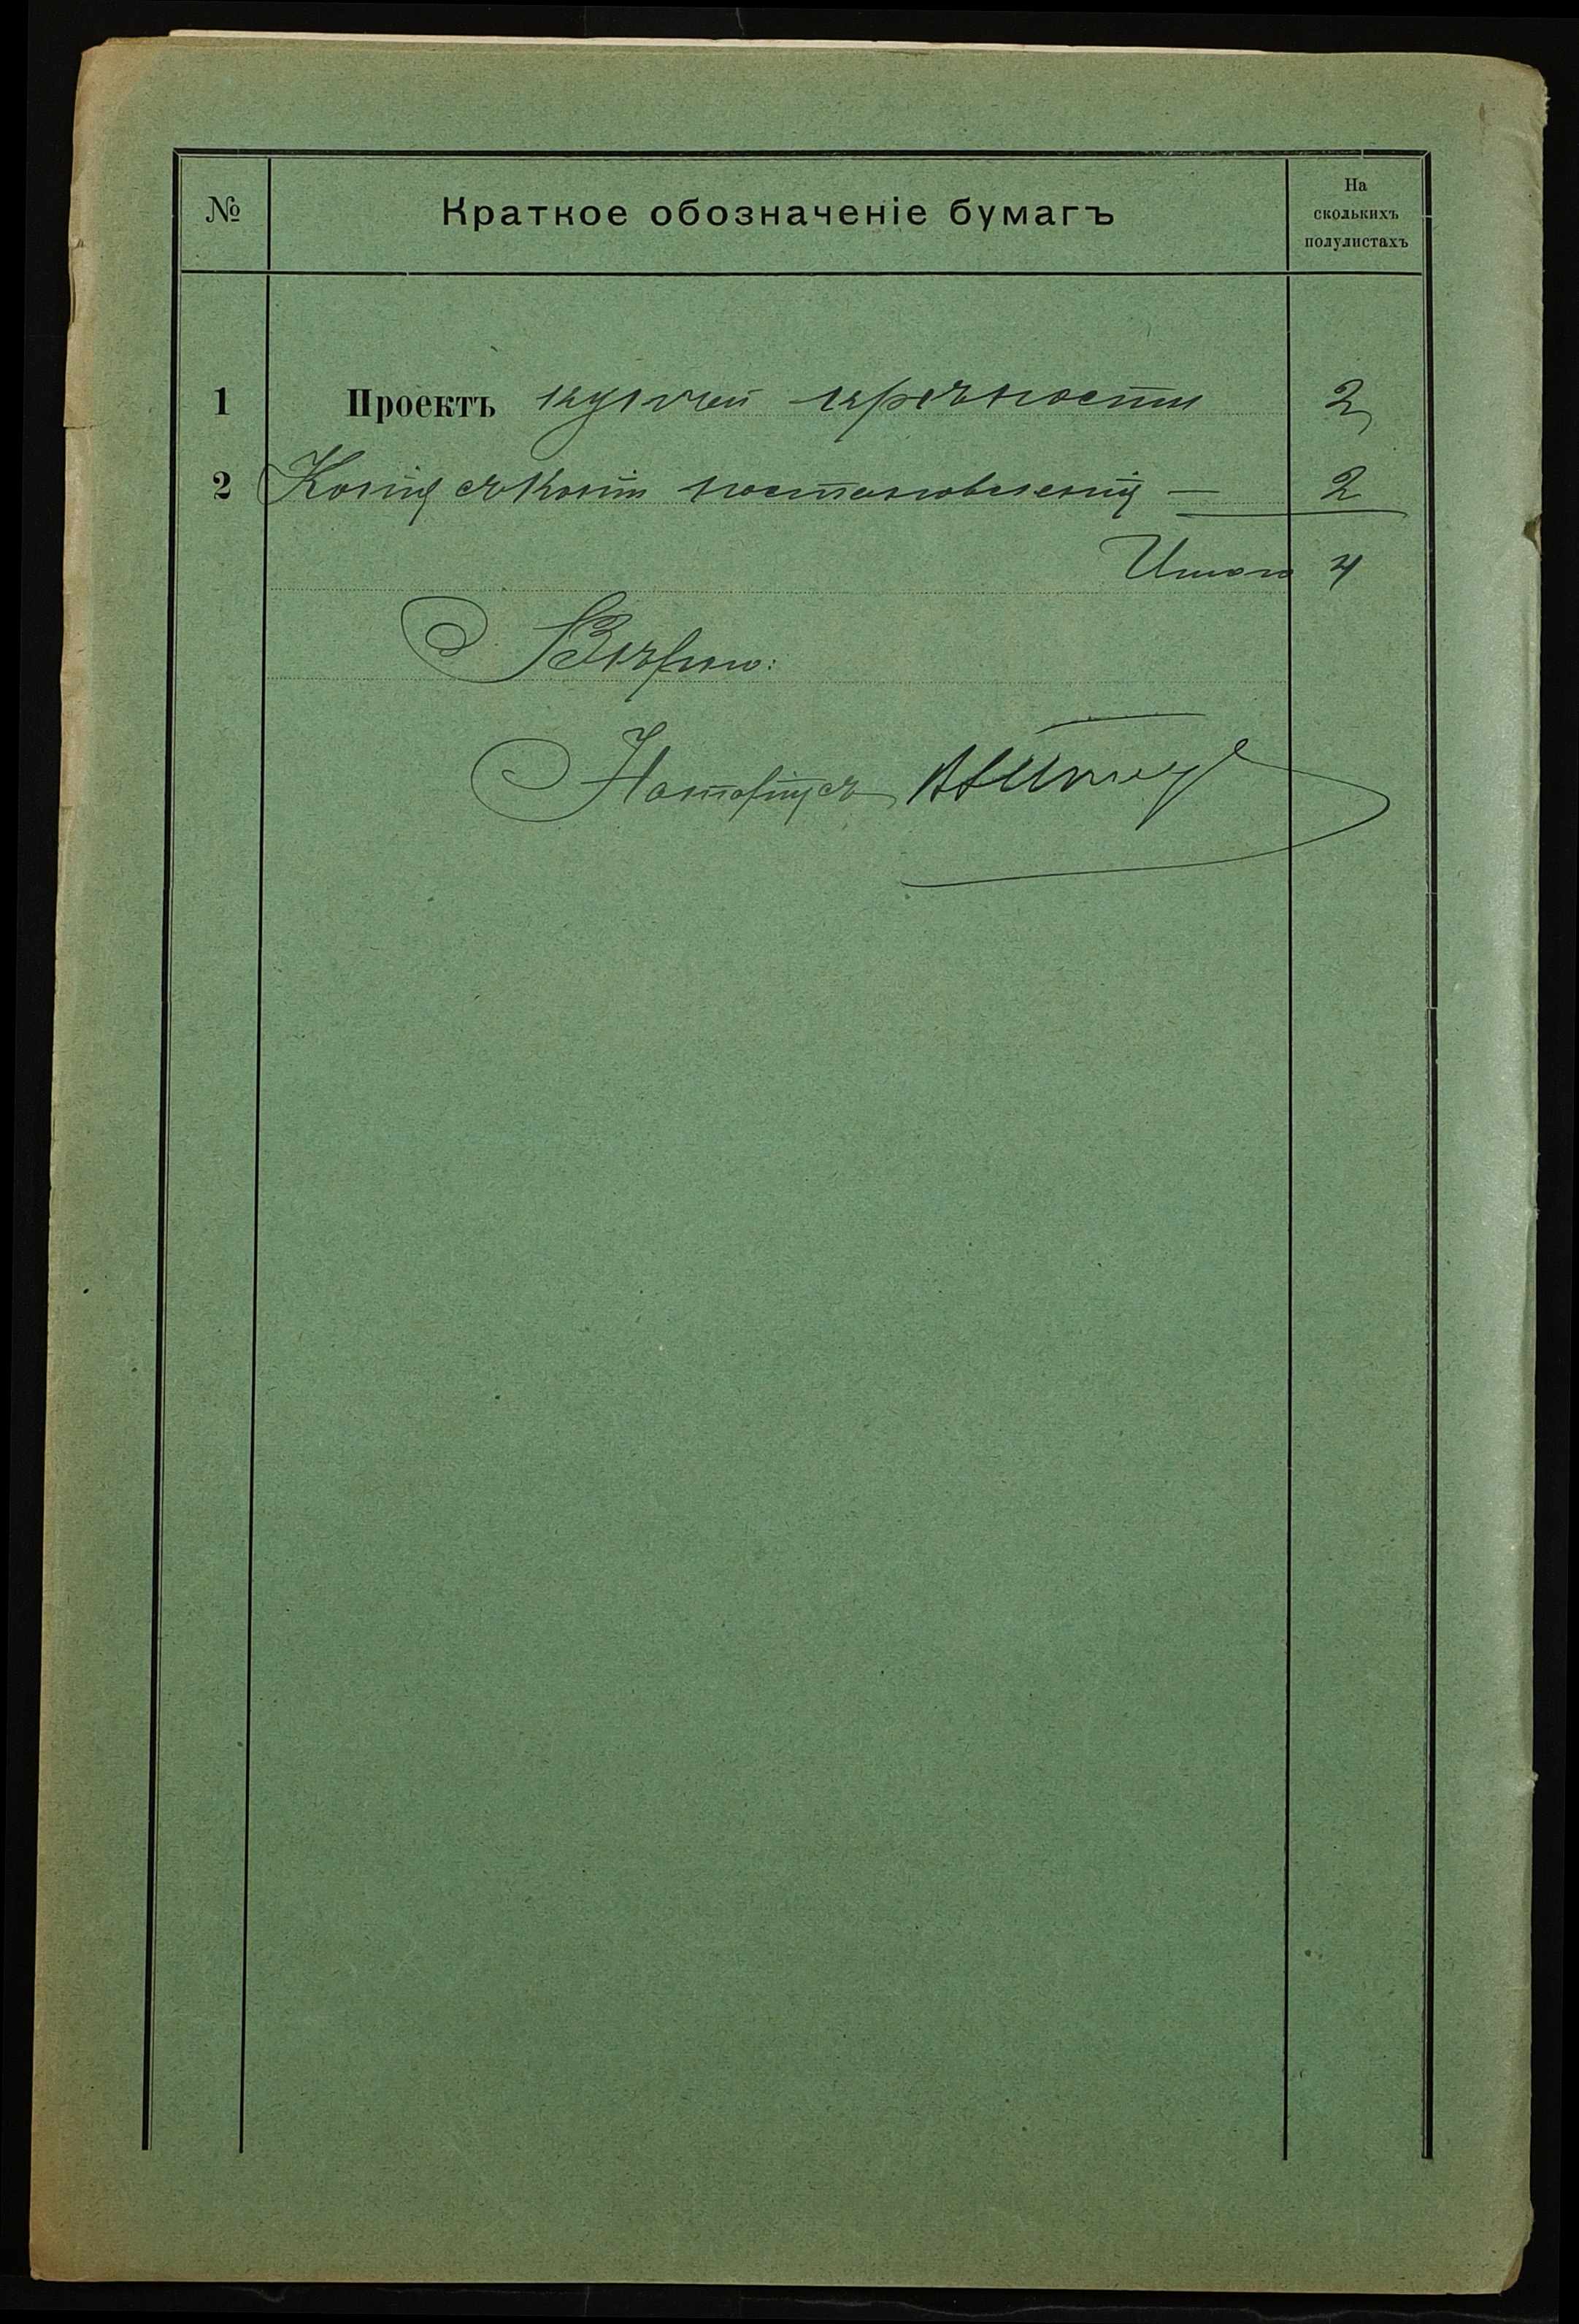 № Краткое обозначеніе бумагъ На
сколькихъ
полулистахъ
1 Проектъ купчей крѣпости 2
2 Копія съ копіи постановленія — 2
Итого 4
Вѣрно:
Нотаріусъ